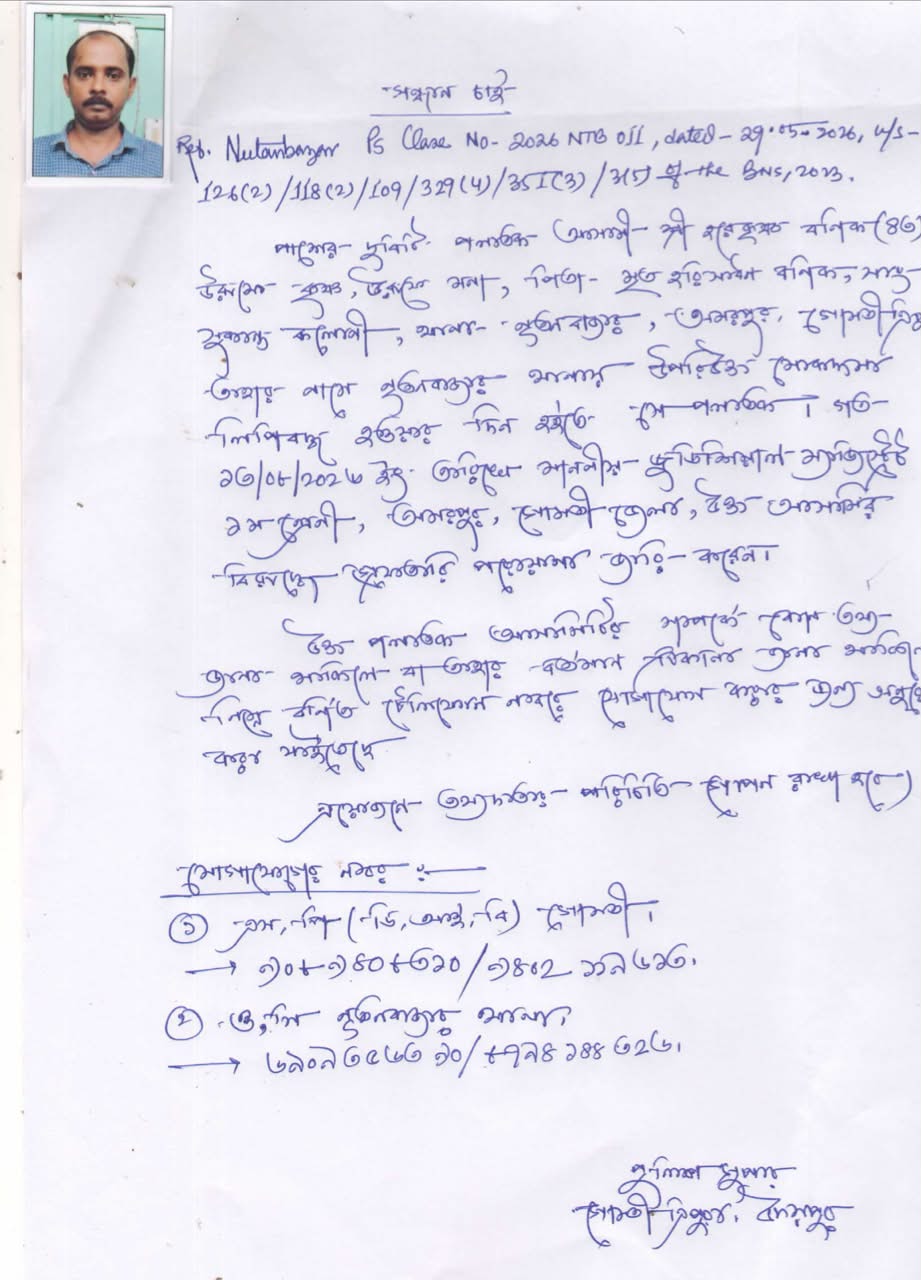 সন্ধান চাই
Ref. Nutanbazar PS Case No- 2026 NTB 011, dated - 29.05.2026, u/s-
126(2) /118(2) /109 /329(4) /351(3) /3(5) of the BNS, 2023.
পাশের ছবিটি পলাতক আসামী শ্রী হরেকৃষ্ণ বনিক (৪৩)
উরফে কৃষ্ণ, উরফে মনা, পিতা- মৃত হরিসাধন বনিক, সাং-
সুকান্ত কলোনী, থানা- নূতনবাজার, অমরপুর, গোমতী
তাহার নামে নূতনবাজার থানায় উপরিউক্ত মোকদ্দমা
লিপিবদ্ধ হওয়ার দিন হইতে সে পলাতক। গত
ইং তারিখে মাননীয় জুডিশিয়াল ম্যাজিস্ট্রেট
১ম শ্রেনী, অমরপুর, গোমতী জেলা, উক্ত আসামির
বিরুদ্ধে গ্রেফতারি পরোয়ানা জারি করেন।
উক্ত পলাতক আসামিটির সম্পর্কে কোন তথ্য
জানা থাকিলে বা তাহার বর্তমান ঠিকানা জানা থাকিলে
নিম্নে বর্নিত টেলিফোন নম্বরে যোগাযোগ করার জন্য অনুরোধ
করা যাইতেছে
প্রয়োজনে তথ্যদাতার পরিচিতি গোপন রাখা হবে)
যোগাযোগের নম্বর :-
① এস, পি (ডি, আই, বি) গোমতী।
→
② ও,সি নূতনবাজার থানা।
→
পুলিশ সুপার
গোমতী ত্রিপুরা, উদয়পুর